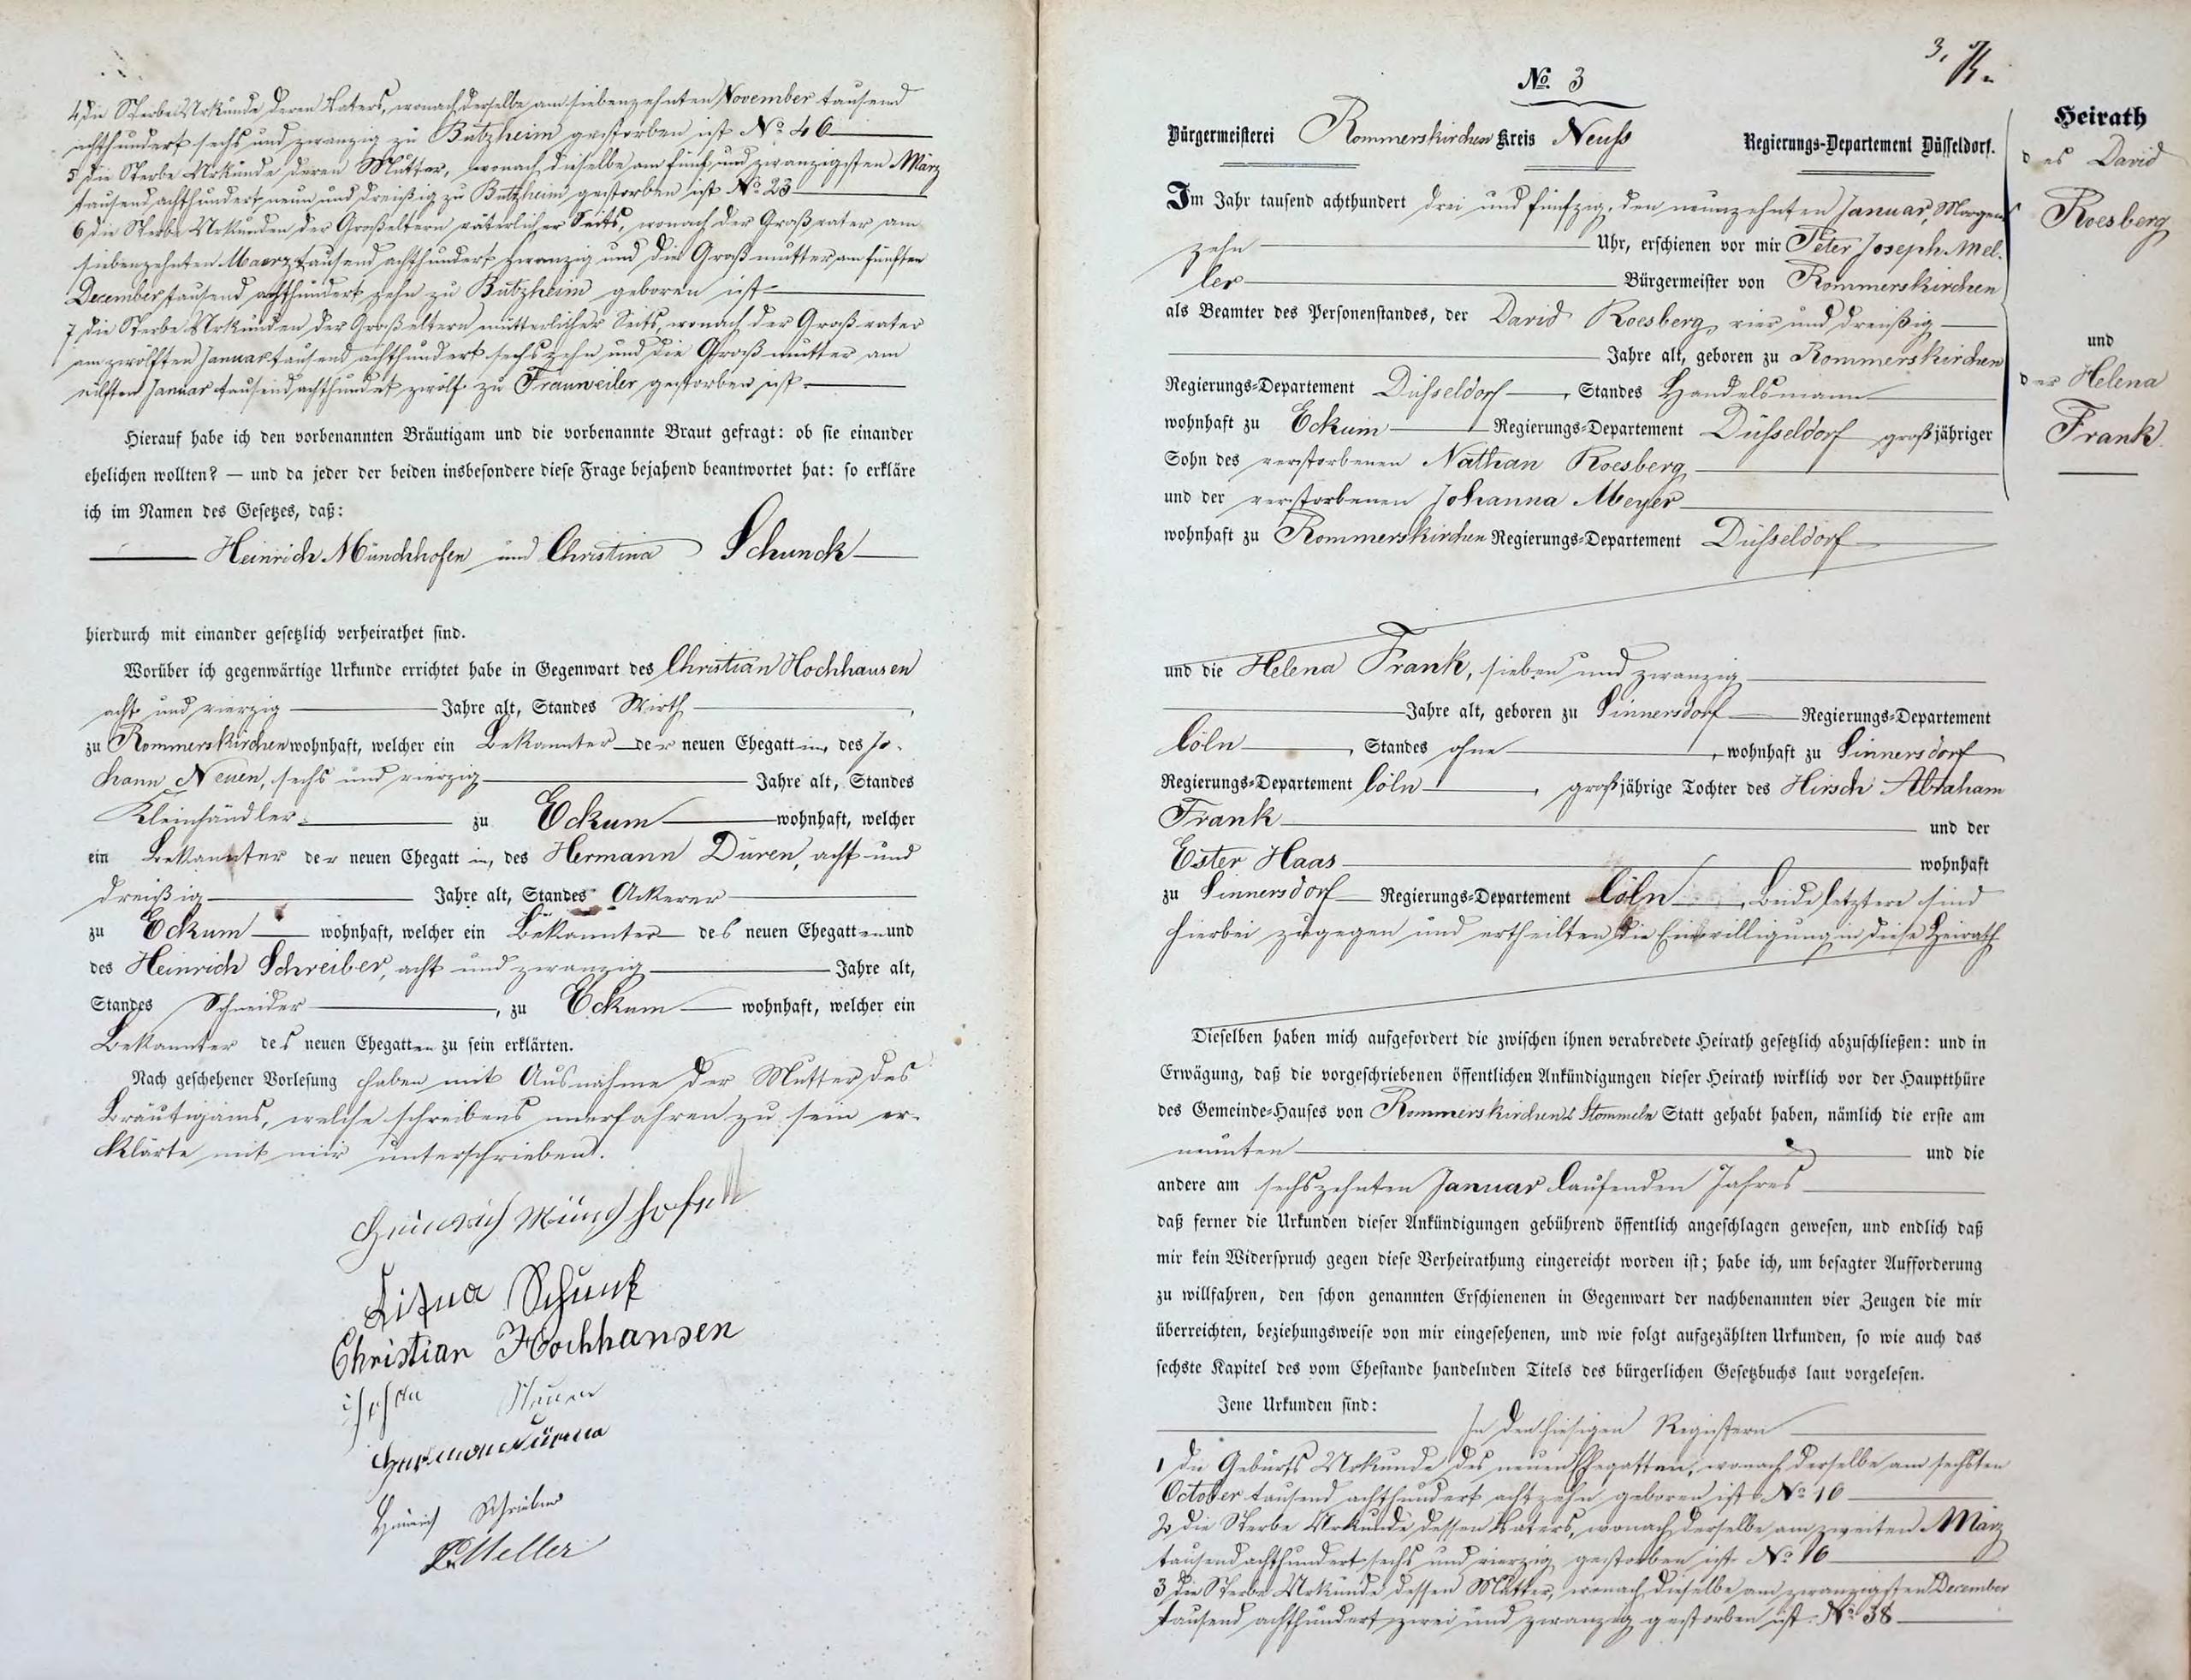 4, die Sterbe Urkunde deren Vaters, wonach derselbe am siebenzehnten November tausend
achthundert sechs und zwanzig zu Butzheim gestorben ist No 46
5 die Sterbe Urkunde deren Mutter, wonach dieselbe am fünf und zwanzigsten März
tausend achthundert neun und dreißig zu Butzheim gestorben ist No 23
6 die Sterbe Urkunden der Großeltern väterlicher Seits, wonach der Großvater am
siebenzehnten Maerz tausend achthundert zwanzig und die Großmutter am fünften
December tausend achthundert zehn zu Butzheim geboren ist
7 die Sterbe Urkunden der Großeltern mütterlicher Seits, wonach der Großvater
am zwölften Januar tausend achthundert sechszehn und die Großmutter am
eilften Januar tausend achthundert zwölf zu Frauweiler gestorben ist.
Hierauf habe ich den vorbenannten Bräutigam und die vorbenannte Braut gefragt: ob sie einander
ehelichen wollten? — und da jeder der beiden insbesondere diese Frage bejahend beantwortet hat: so erkläre
ich im Namen des Gesetzes, daß:
Heinrich Münchhofen und Christina Schunck
hierdurch mit einander gesetzlich verheirathet sind.
Worüber ich gegenwärtige Urkunde errichtet habe in Gegenwart des Christian Hochhausen
acht und vierzig Jahre alt, Standes Wirth,
zu Rommerskirchen wohnhaft, welcher ein Bekannter der neuen Ehegattin, des Jo-
hann Neuen, sechs und vierzig Jahre alt, Standes
Kleinhändler zu Eckum wohnhaft, welcher
ein Bekannter der neuen Ehegattin, des Hermann Düren, acht und
dreißig Jahre alt, Standes Ackerer
zu Eckum wohnhaft, welcher ein Bekannter des neuen Ehegatten und
des Heinrich Schreiber, acht und zwanzig Jahre alt,
Standes Schneider, zu Eckum wohnhaft, welcher ein
Bekannter des neuen Ehegatten zu sein erklärten.
Nach geschehener Vorlesung haben mit Ausnahme der Mutter des
Bräutigams, welche schreibens unerfahren zu sein er-
klärte mit mir unterschrieben.
Heinrich Münchhofen
Schunk
Christian Hochhausen
Johan Neuen
Heinrich Schreiber
Meller
No 3
Bürgermeisterei Rommerskirchen Kreis Neuss Regierungs-Departement Düsseldorf.
Im Jahr tausend achthundert drei und fünfzig, den neunzehnten Januar, Morgens
zehn Uhr, erschienen vor mir Peter Joseph Mel-
ler Bürgermeister von Rommerskirchen
als Beamter des Personenstandes, der David Roesberg, vier und dreißig
Jahre alt, geboren zu Rommerskirchen
Regierungs-Departement Düsseldorf, Standes Handelsmann
wohnhaft zu Eckum Regierungs-Departement Düsseldorf großjähriger
Sohn des verstorbenen Nathan Roesberg
und der verstorbenen Johanna Meyer
wohnhaft zu Rommerskirchen Regierungs-Departement Düsseldorf
und die Helena Frank, sieben und zwanzig
Jahre alt, geboren zu Sinnersdorf Regierungs-Departement
Cöln, Standes ohne, wohnhaft zu Sinnersdorf
Regierungs-Departement Cöln, großjährige Tochter des Hirsch Abraham
Frank und der
Ester Haas wohnhaft
zu Sinnersdorf Regierungs-Departement Cöln, Beide letztere sind
hierbei zugegen und ertheilten die Einwilligung in diese Heirath
Dieselben haben mich aufgefordert die zwischen ihnen verabredete Heirath gesetzlich abzuschließen: und in
Erwägung, daß die vorgeschriebenen öffentlichen Ankündigungen dieser Heirath wirklich vor der Hauptthüre
des Gemeinde-Hauses von Rommerskirchen & Stommeln Statt gehabt haben, nämlich die erste am
neunten und die
andere am sechszehnten Januar laufenden Jahres
daß ferner die Urkunden dieser Ankündigungen gebührend öffentlich angeschlagen gewesen, und endlich daß
mir kein Widerspruch gegen diese Verheirathung eingereicht worden ist; habe ich, um besagter Aufforderung
zu willfahren, den schon genannten Erschienenen in Gegenwart der nachbenannten vier Zeugen die mir
überreichten, beziehungsweise von mir eingesehenen, und wie folgt aufgezählten Urkunden, so wie auch das
sechste Kapitel des vom Ehestande handelnden Titels des bürgerlichen Gesetzbuchs laut vorgelesen.
Jene Urkunden sind:
In den hiesigen Registern
1 die Geburts Urkunde des neuen Ehegatten, wonach derselbe am sechsten
October tausend achthundert achtzehn geboren ist No 10
2, die Sterbe Urkunde dessen Vaters, wonach derselbe am zweiten März
tausend achthundert sechs und vierzig gestorben ist No 16
3 die Sterbe Urkunde dessen Mutter, wonach dieselbe am zwanzigsten December
tausend achthundert zwei und zwanzig gestorben ist No 38
Heirath
des David
Roesberg
und
der Helena
Frank